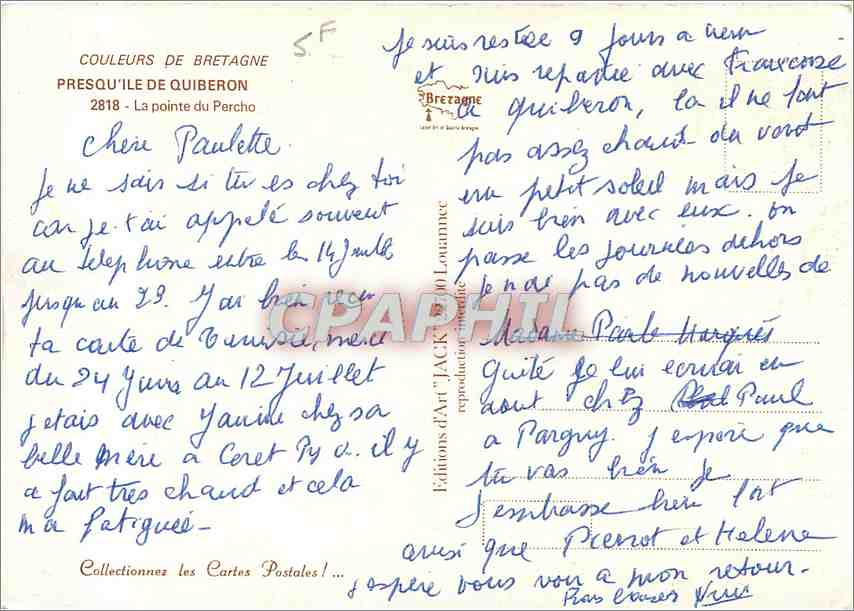 COULEURS DE BRETAGNE
PRESQU'ILE DE QUIBERON
2818 - La pointe du Percho
S.F
Chere Paulette
Je ne sais si tu es chez toi
car je t'ai appelé souvent
au telephone entre le 14 Juillet
jusqu au 29. J ai bien recu
ta carte de Tunisie, merci
du 24 Juin au 12 Juillet
j etais avec Janine chez sa
belle mère a Ceret Py O. il y
a fait tres chaud et cela
m a fatiguée -
Collectionnez les Cartes Postales ! ...
Bretagne
Editions d'Art "JACK" Louannec
reproduction interdite
CPAPHIL
Je suis restée 9 jours a
et suis repartie avec Francoise
a quiberon, la il ne fait
pas assez chaud du vent
un petit soleil mais je
suis bien avec eux. on
passe les journées dehors
Je n ai pas de nouvelles de
Madame
guité je lui ecrirai en
aout chez Paul
a Parguy. j espere que
tu vas bien je
t embrasse bien fort
ainsi que Pierrot et Helene
j espere vous voir a mon retour -